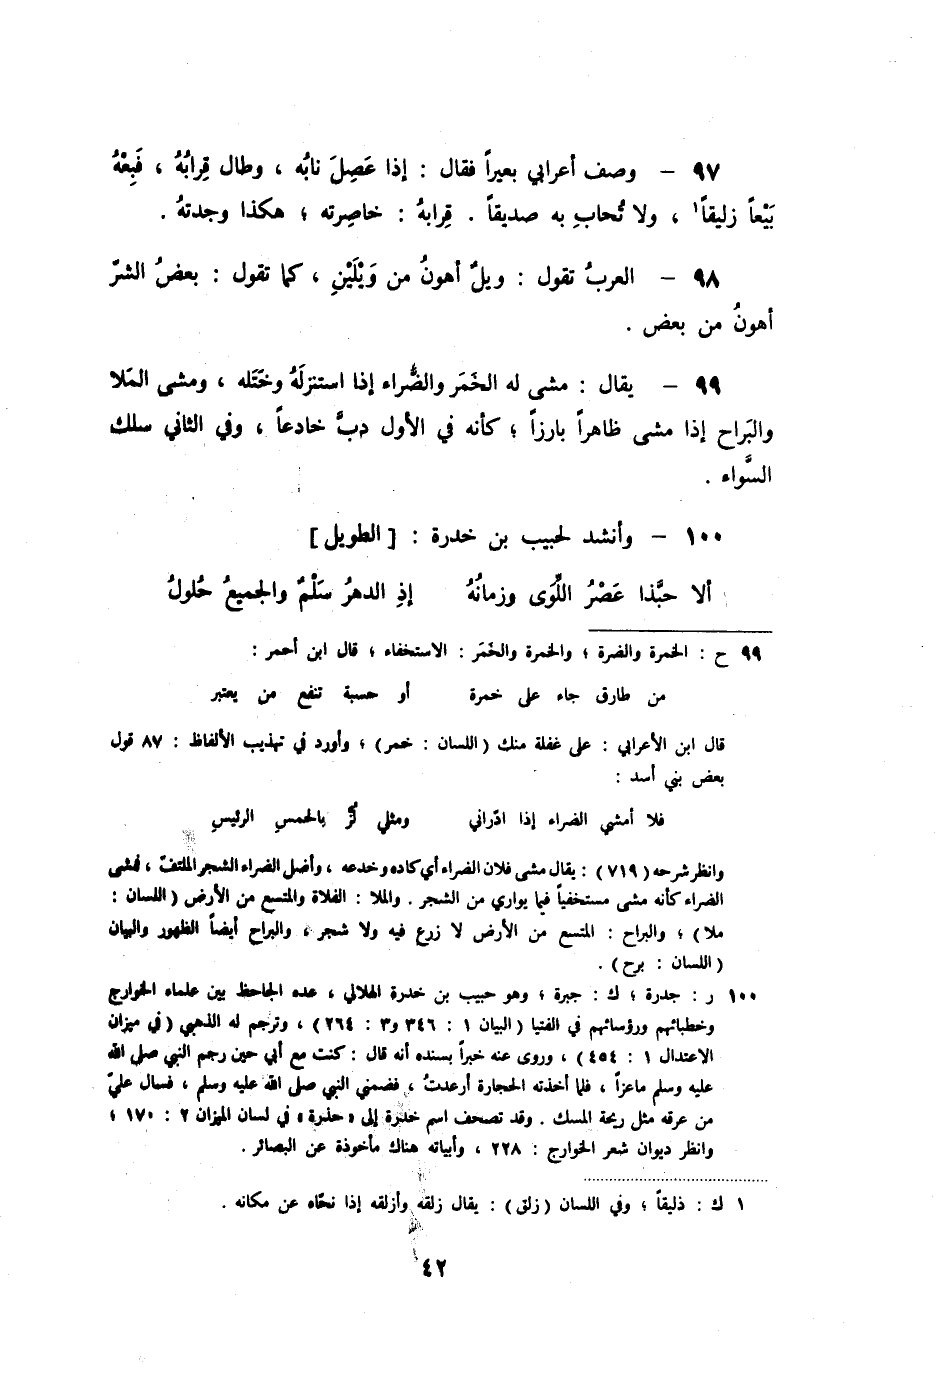 ٩٧ – وصف أعرابي بعيراً فقال : إذا عَصِلَ نابُه ، وطال قِرابُهُ ، فَبِعْهُ
بَيْعاً زليقاً١ ، ولا تُحابِ به صديقاً . قِرابهُ : خاصِرته ؛ هكذا وجدتهُ .
٩٨ – العربُ تقول : ويلٌ أهونُ من وَيْلَيْنِ ، كما تقول : بعضُ الشرّ
أهونُ من بعض .
٩٩ – يقال : مشى له الخَمَر والضُّراء إذا استنزلَهُ وخَتَله ، ومشى المَلا
والبَراح إذا مشى ظاهراً بارزاً ؛ كأنه في الأول دبَّ خادعاً ، وفي الثاني سلك
السَّواء .
١٠٠ – وأنشد لحبيب بن خدرة : [ الطويل ]
ألا حبَّذا عَصْرُ اللِّوَى وزمانُهُ إذِ الدهرُ سَلْمٌ والجميعُ حُلولُ
٩٩ ح : الخمرة والضرة ؛ والخمرة والخَمَر : الاستخفاء ؛ قال ابن أحمر :
من طارق جاء على خمرة أو حسبة تنفع من يعتبر
قال ابن الأعرابي : على غفلة منك ( اللسان : خمر ) ؛ وأورد في تهذيب الألفاظ : ٨٧ قول
بعض بني أسد :
فلا أمشي الضراء إذا ادّراني ومثلي لُزَّ بالحمسِ الرئيسِ
وانظر شرحه ( ٧١٩ ) : يقال مشى فلان الضراء أي كاده وخدعه ، وأصل الضراء الشجر الملتفّ ، فمشى
الضراء كأنه مشى مستخفياً فيما يواري من الشجر . والملا : الفلاة والمتسع من الأرض ( اللسان :
ملا ) ؛ والبراح : المتسع من الأرض لا زرع فيه ولا شجر ، والبراح أيضاً الظهور والبيان
( اللسان : برح ) .
١٠٠ ر : جدرة ؛ ك : جبرة ؛ وهو حبيب بن خدرة الهلالي ، عده الجاحظ بين علماء الخوارج
وخطبائهم ورؤسائهم في الفتيا ( البيان ١ : ٣٤٦ و٣ : ٢٦٤ ) ، وترجم له الذهبي ( في ميزان
الاعتدال ١ : ٤٥٤ ) ، وروى عنه خبراً بسنده أنه قال : كنت مع أبي حين رجم النبي صلى الله
عليه وسلم ماعزاً ، فلما أخذته الحجارة أرعدتُ ، فضمني النبي صلى الله عليه وسلم ، فسال عليّ
من عرقه مثل ريحة المسك . وقد تصحف اسم خدرة إلى «حذرة» في لسان الميزان ٢ : ١٧٠ ؛
وانظر ديوان شعر الخوارج : ٢٢٨ ، وأبياته هناك مأخوذة عن البصائر .
١ ك : ذليقاً ؛ وفي اللسان ( زلق ) : يقال زلقه وأزلقه إذا نحّاه عن مكانه .
٤٢